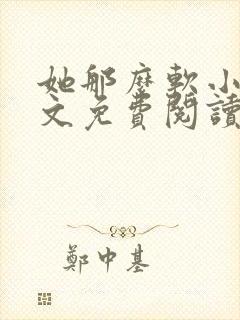 她那麼軟小
文免費閱讀
鄭中基